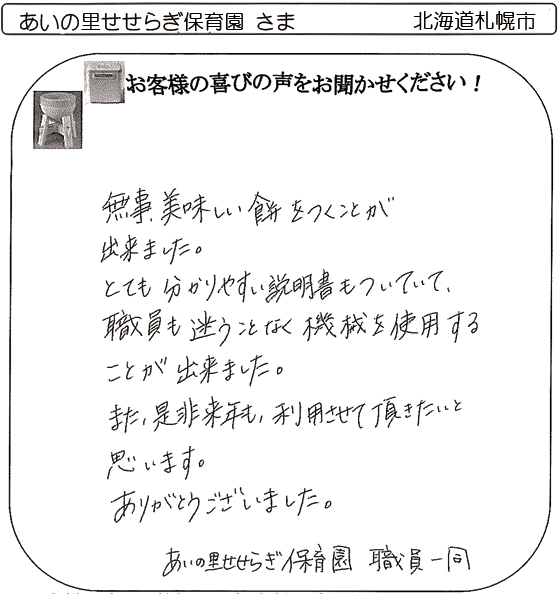 あいの里せせらぎ保育園 さま 北海道札幌市
お客様の喜びの声をお聞かせください！
無事、美味しい餅をつくことが
出来ました。
とても分かりやすい説明書もついていて、
職員も迷うことなく機械を使用する
ことが出来ました。
また、是非来年も、利用させて頂きたいと
思います。
ありがとうございました。
あいの里せせらぎ保育園 職員一同